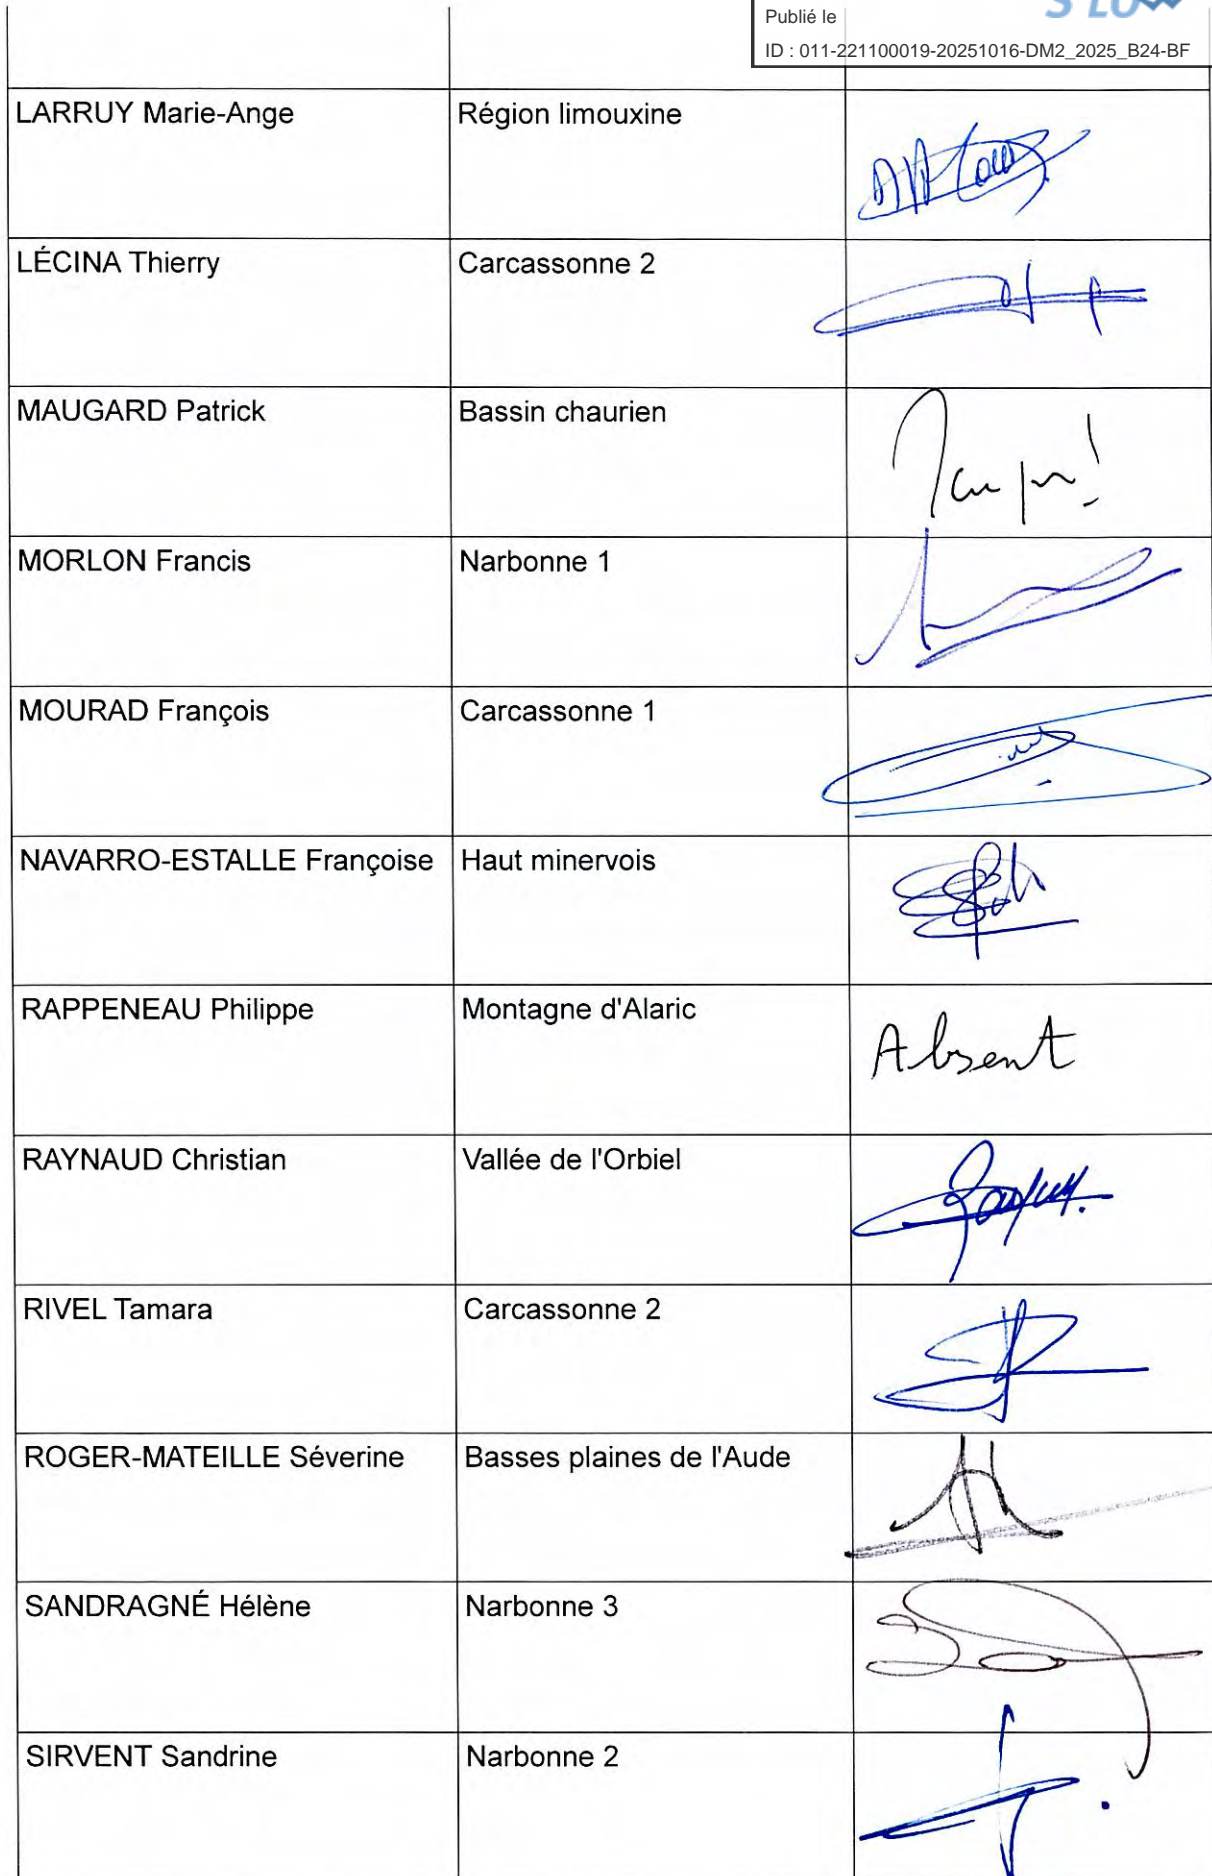 S LO
Publié le
ID : 011-221100019-20251016-DM2_2025_B24-BF
LARRUY Marie-Ange Région limouxine
LÉCINA Thierry Carcassonne 2
MAUGARD Patrick Bassin chaurien
MORLON Francis Narbonne 1
MOURAD François Carcassonne 1
NAVARRO-ESTALLE Françoise Haut minervois
RAPPENEAU Philippe Montagne d'Alaric Absent
RAYNAUD Christian Vallée de l'Orbiel
RIVEL Tamara Carcassonne 2
ROGER-MATEILLE Séverine Basses plaines de l'Aude
SANDRAGNÉ Hélène Narbonne 3
SIRVENT Sandrine Narbonne 2